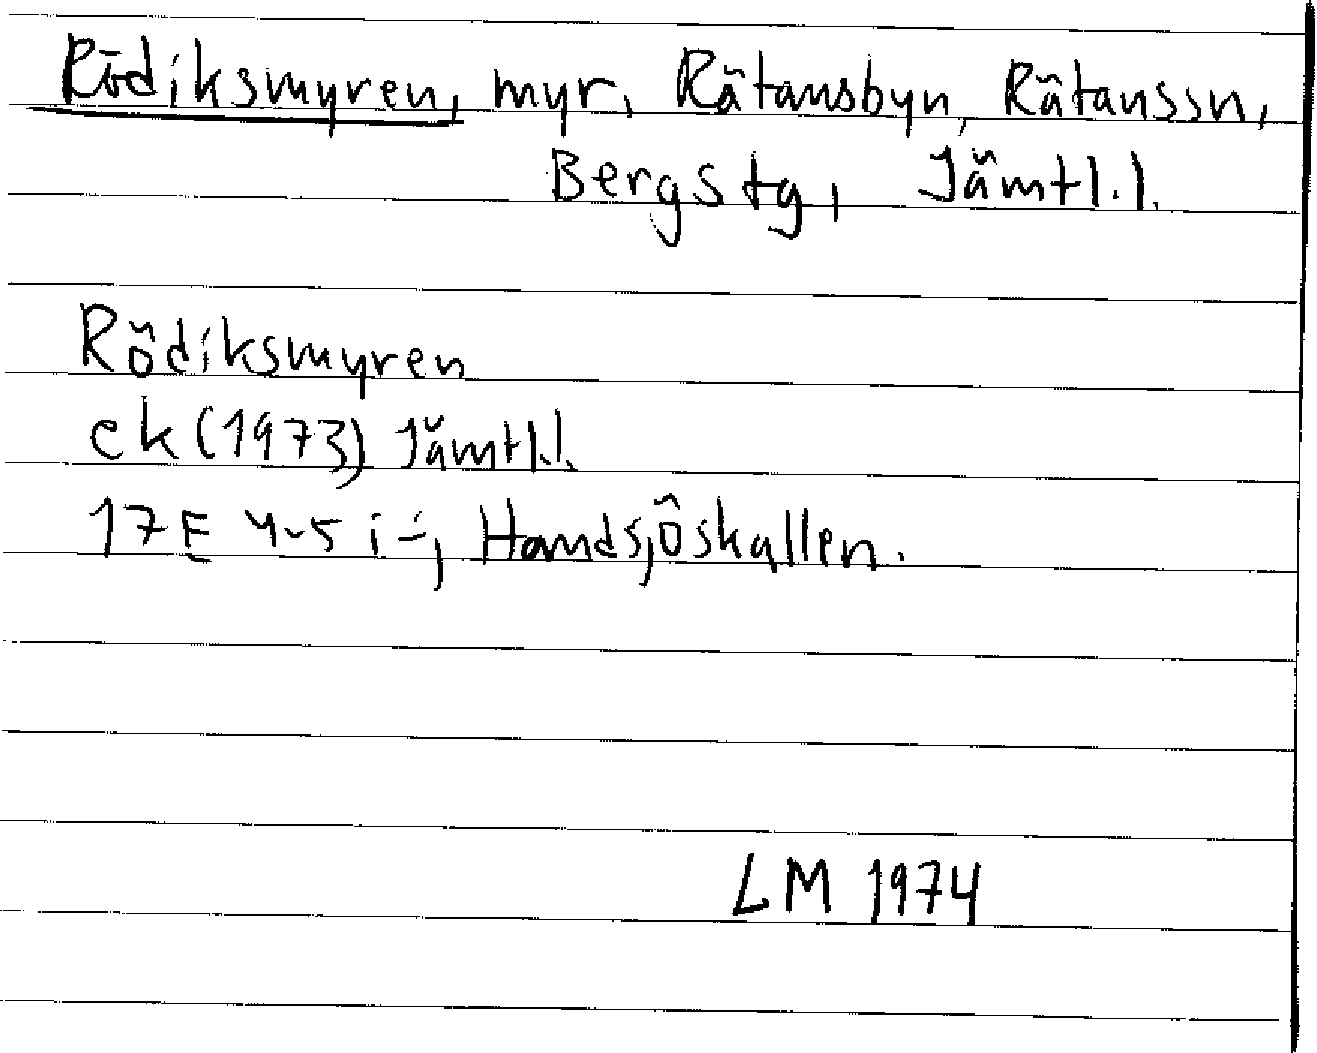 Rödiksmyren, myr, Rätansbyn, Rätanssn,
Bergs tg, Jämtl.l.
Rödiksmyren
ek (1973) Jämtl.l.
17E 4-5 i-j, Handsjöskallen.
LM 1974